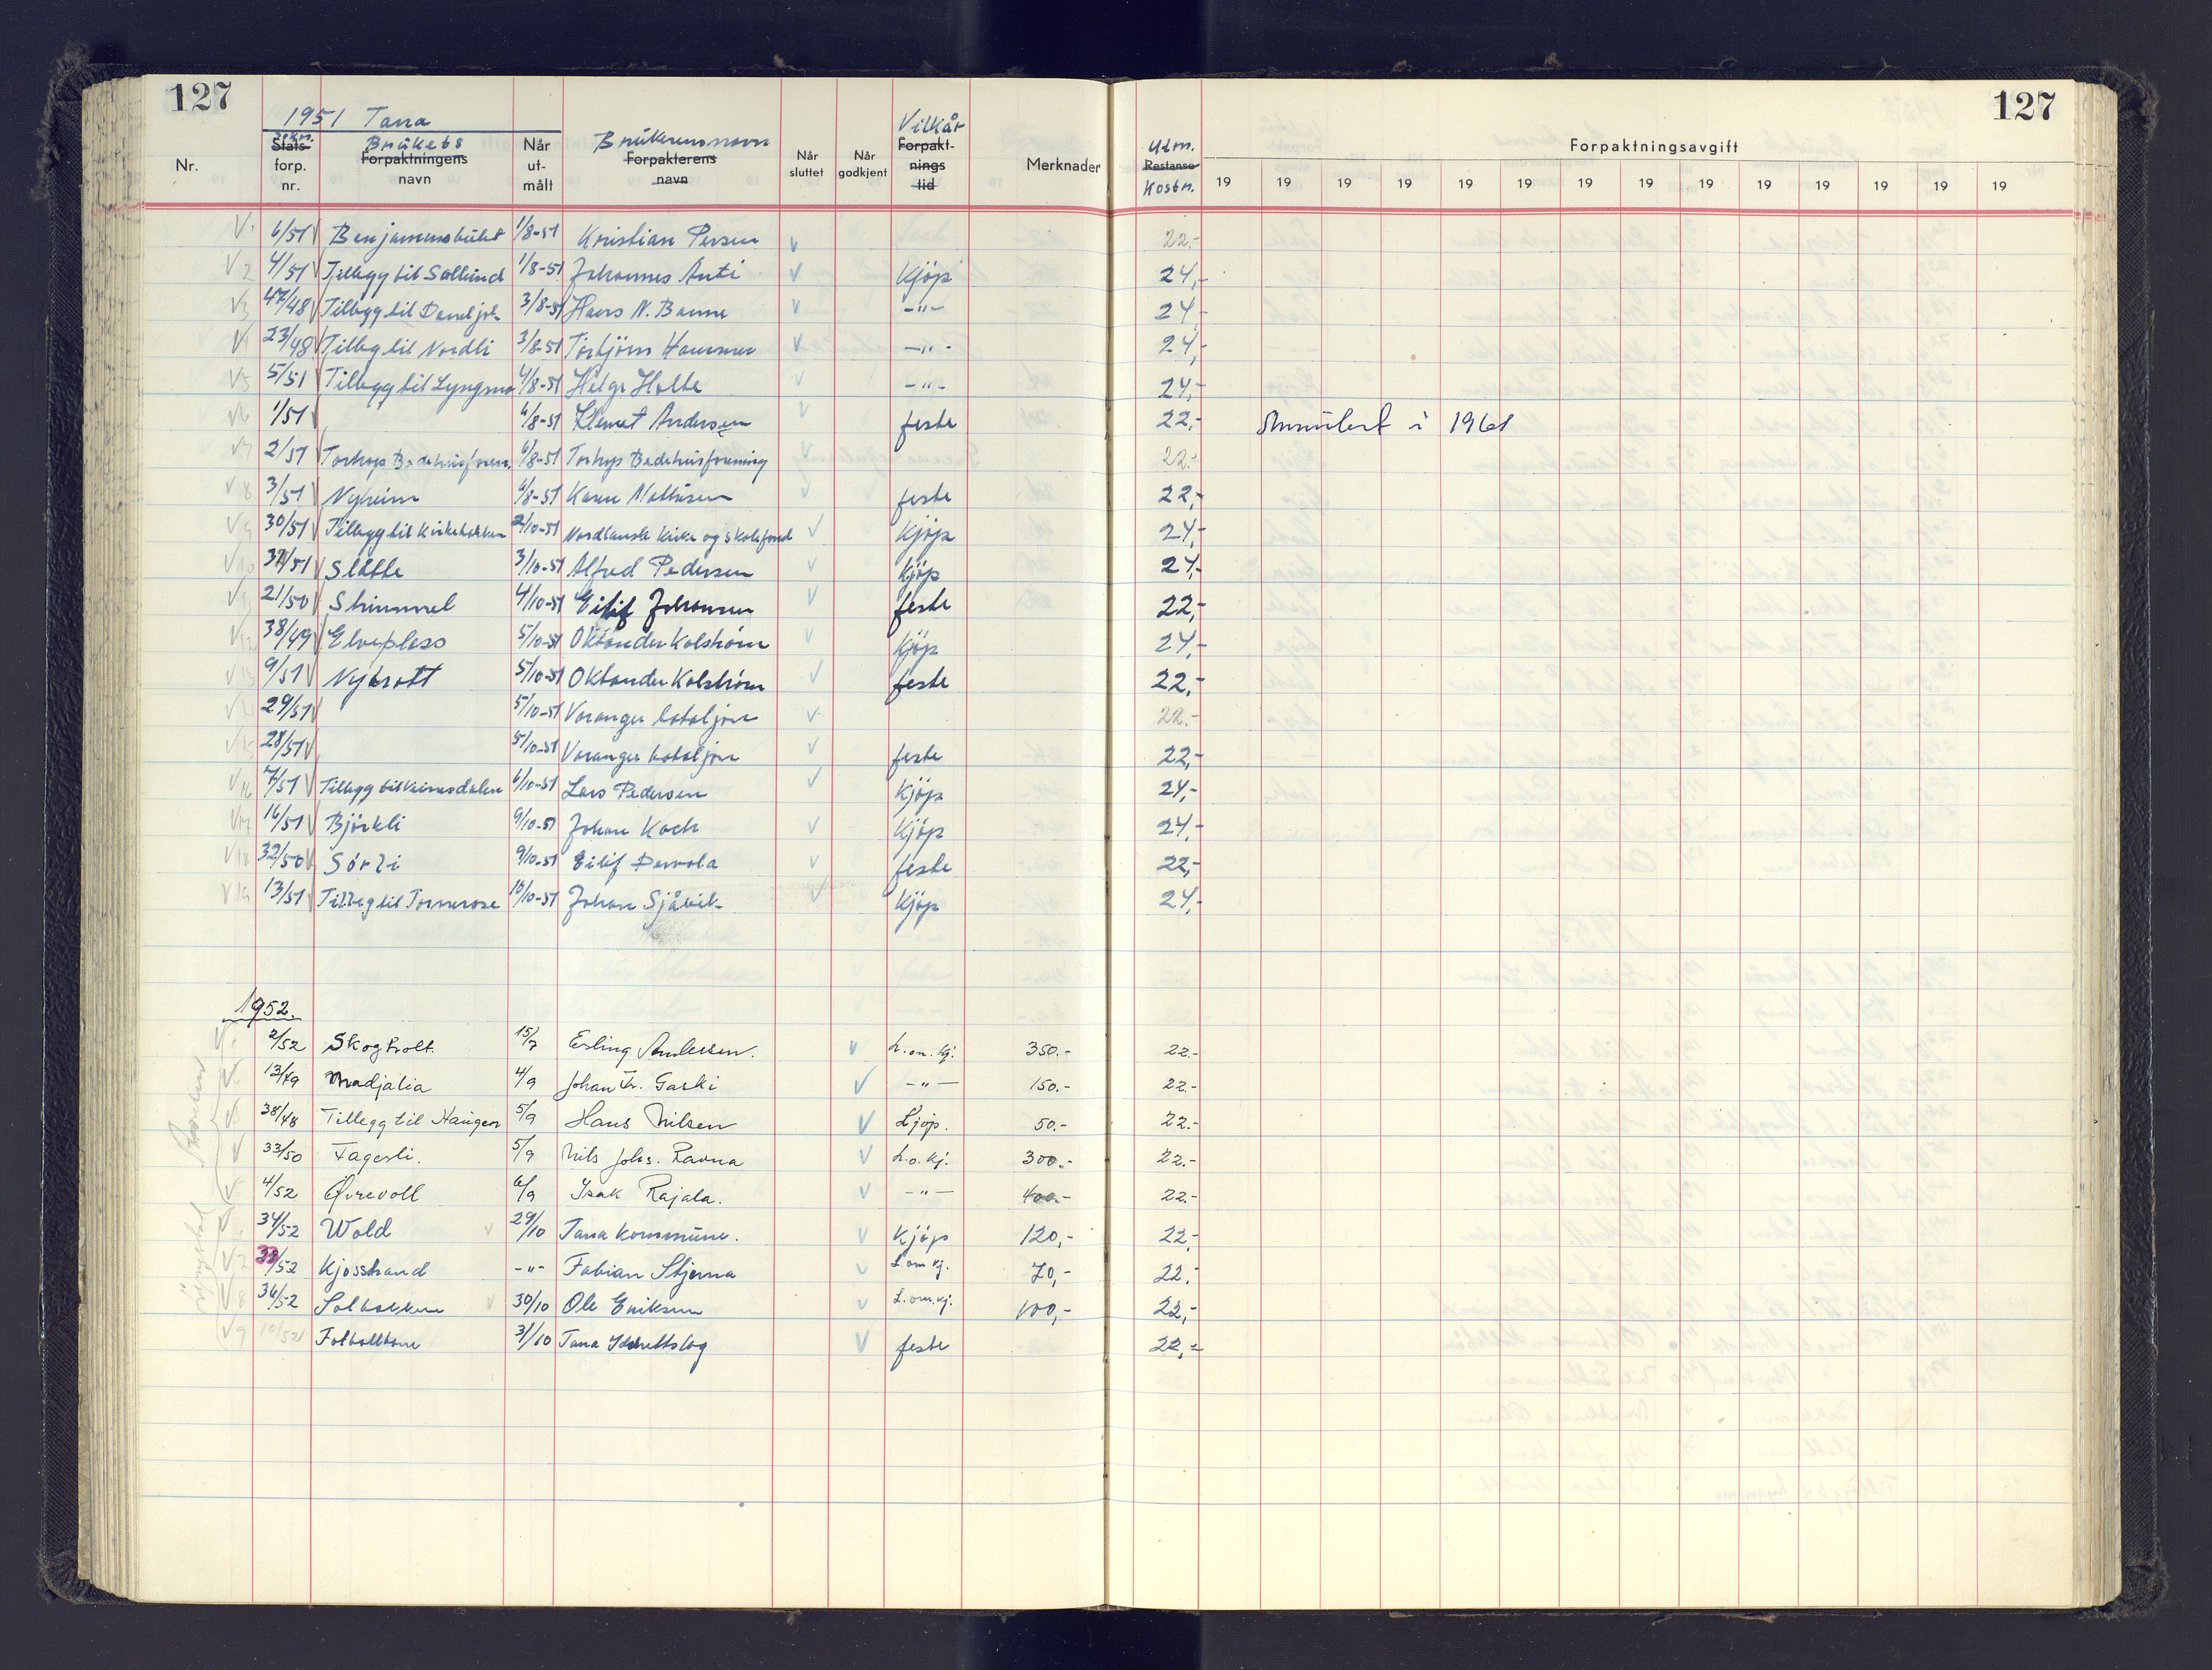 127
127
1951 Tana
Nr.
Søkn.
Stats-
forp.
nr.
Brukets
Forpaktningens
navn
Når
ut-
målt
Brukerens navn
Forpakterens
navn
Når
sluttet
Når
godkjent
Vilkår
Forpakt-
nings
tid
Merknader
Utm.
Restanse
Kostn.
Forpaktningsavgift
19 19 19 19 19 19 19 19 19 19 19 19 19 19
V 1 6/51 V 1/8-51 Kristian Persen V 22.-
V 2 4/51 V Tillegg til Sollund 1/8-51 Johannes Anti V Kjöp 24,-
V 3 47/48 V Tillegg til 3/8-51 Hans N. V -"- 24,-
V 23/48 V Tilleg til Nordli 3/8-51 Torbjörn V -"- 24,-
V 5 5/51 Tillegg til Lyngmo 4/8-51 Helge Holte V -"- 24,-
V 6 1/51 V 6/8-51 Klemet Andersen V feste 22,- Annulert i 1961
V 7 2/51 Torhop Bedehusforen. 6/8-51 Torhop Bedehusforening V 22.-
V 8 3/51 V Nyheim 6/8-51 Mathisen V feste 22,-
V 9 30/51 V Tillegg til Kirkebakken 2/10-51 Nordlands kirke og skolefond V Kjöp 24,-
V 10 /51 V Slätte 3/10-51 Alfred Pedersen V Kjöp 24,-
V 21/50 V 4/10-51 Eilif Johansen V feste 22,-
V 12 38/49 V Elveplass 5/10-51 Oktander Kolström V Kjöp 24,-
V 13 9/51 V Nybrott 5/10-51 Oktander Kolström V feste 22,-
V 29/51 V 5/10-51 Varanger bataljon V 22.-
V 15 28/51 V 5/10-51 Varanger bataljon V feste 22,-
V 16 7/51 V Tillegg til 6/10-51 Lars Pedersen V Kjöp 24,-
V 17 16/51 V Björkli 9/10-51 Johan Koch V Kjöp 24,-
V 18 32/50 V Sörli 9/10-51 Eilif Dervola V feste 22,-
V 19 13/51 Tilleg til Tornerose 10/10-51 Johan Sjåvik V Kjöp 24,-
1952.
V 2/52 Skogholt. 15/7 Erling Andersen. V L. om. kj. 350.- 22.-
V 13/49 Madjalia 4/9 Johan Fr. Gaski V -"- 150.- 22.-
V 38/48 Tillegg til Haugen 5/9 Hans Nilsen V Kjöp. 50.- 22.-
V 33/50 Fagerli. 5/9 Nils Johs. Ravna V L. o. kj. 300.- 22.-
V 4/52 Øvrevoll 6/9 Isak Rajala. V -"- 400.- 22.-
V 34/52 Wold V 29/10 Tana kommune. V Kjöp 120,- 22,-
V 7 /52 Kjosstrand -"- Fabian Stjerna V L. om kj. 70,- 22,-
V 8 36/52 Solbakken V 30/10 Ole Eriksen V L. om. kj. 100,- 22,-
V 9 10/52 Fotballbane 31/10 Tana Idrettslag V feste 22,-